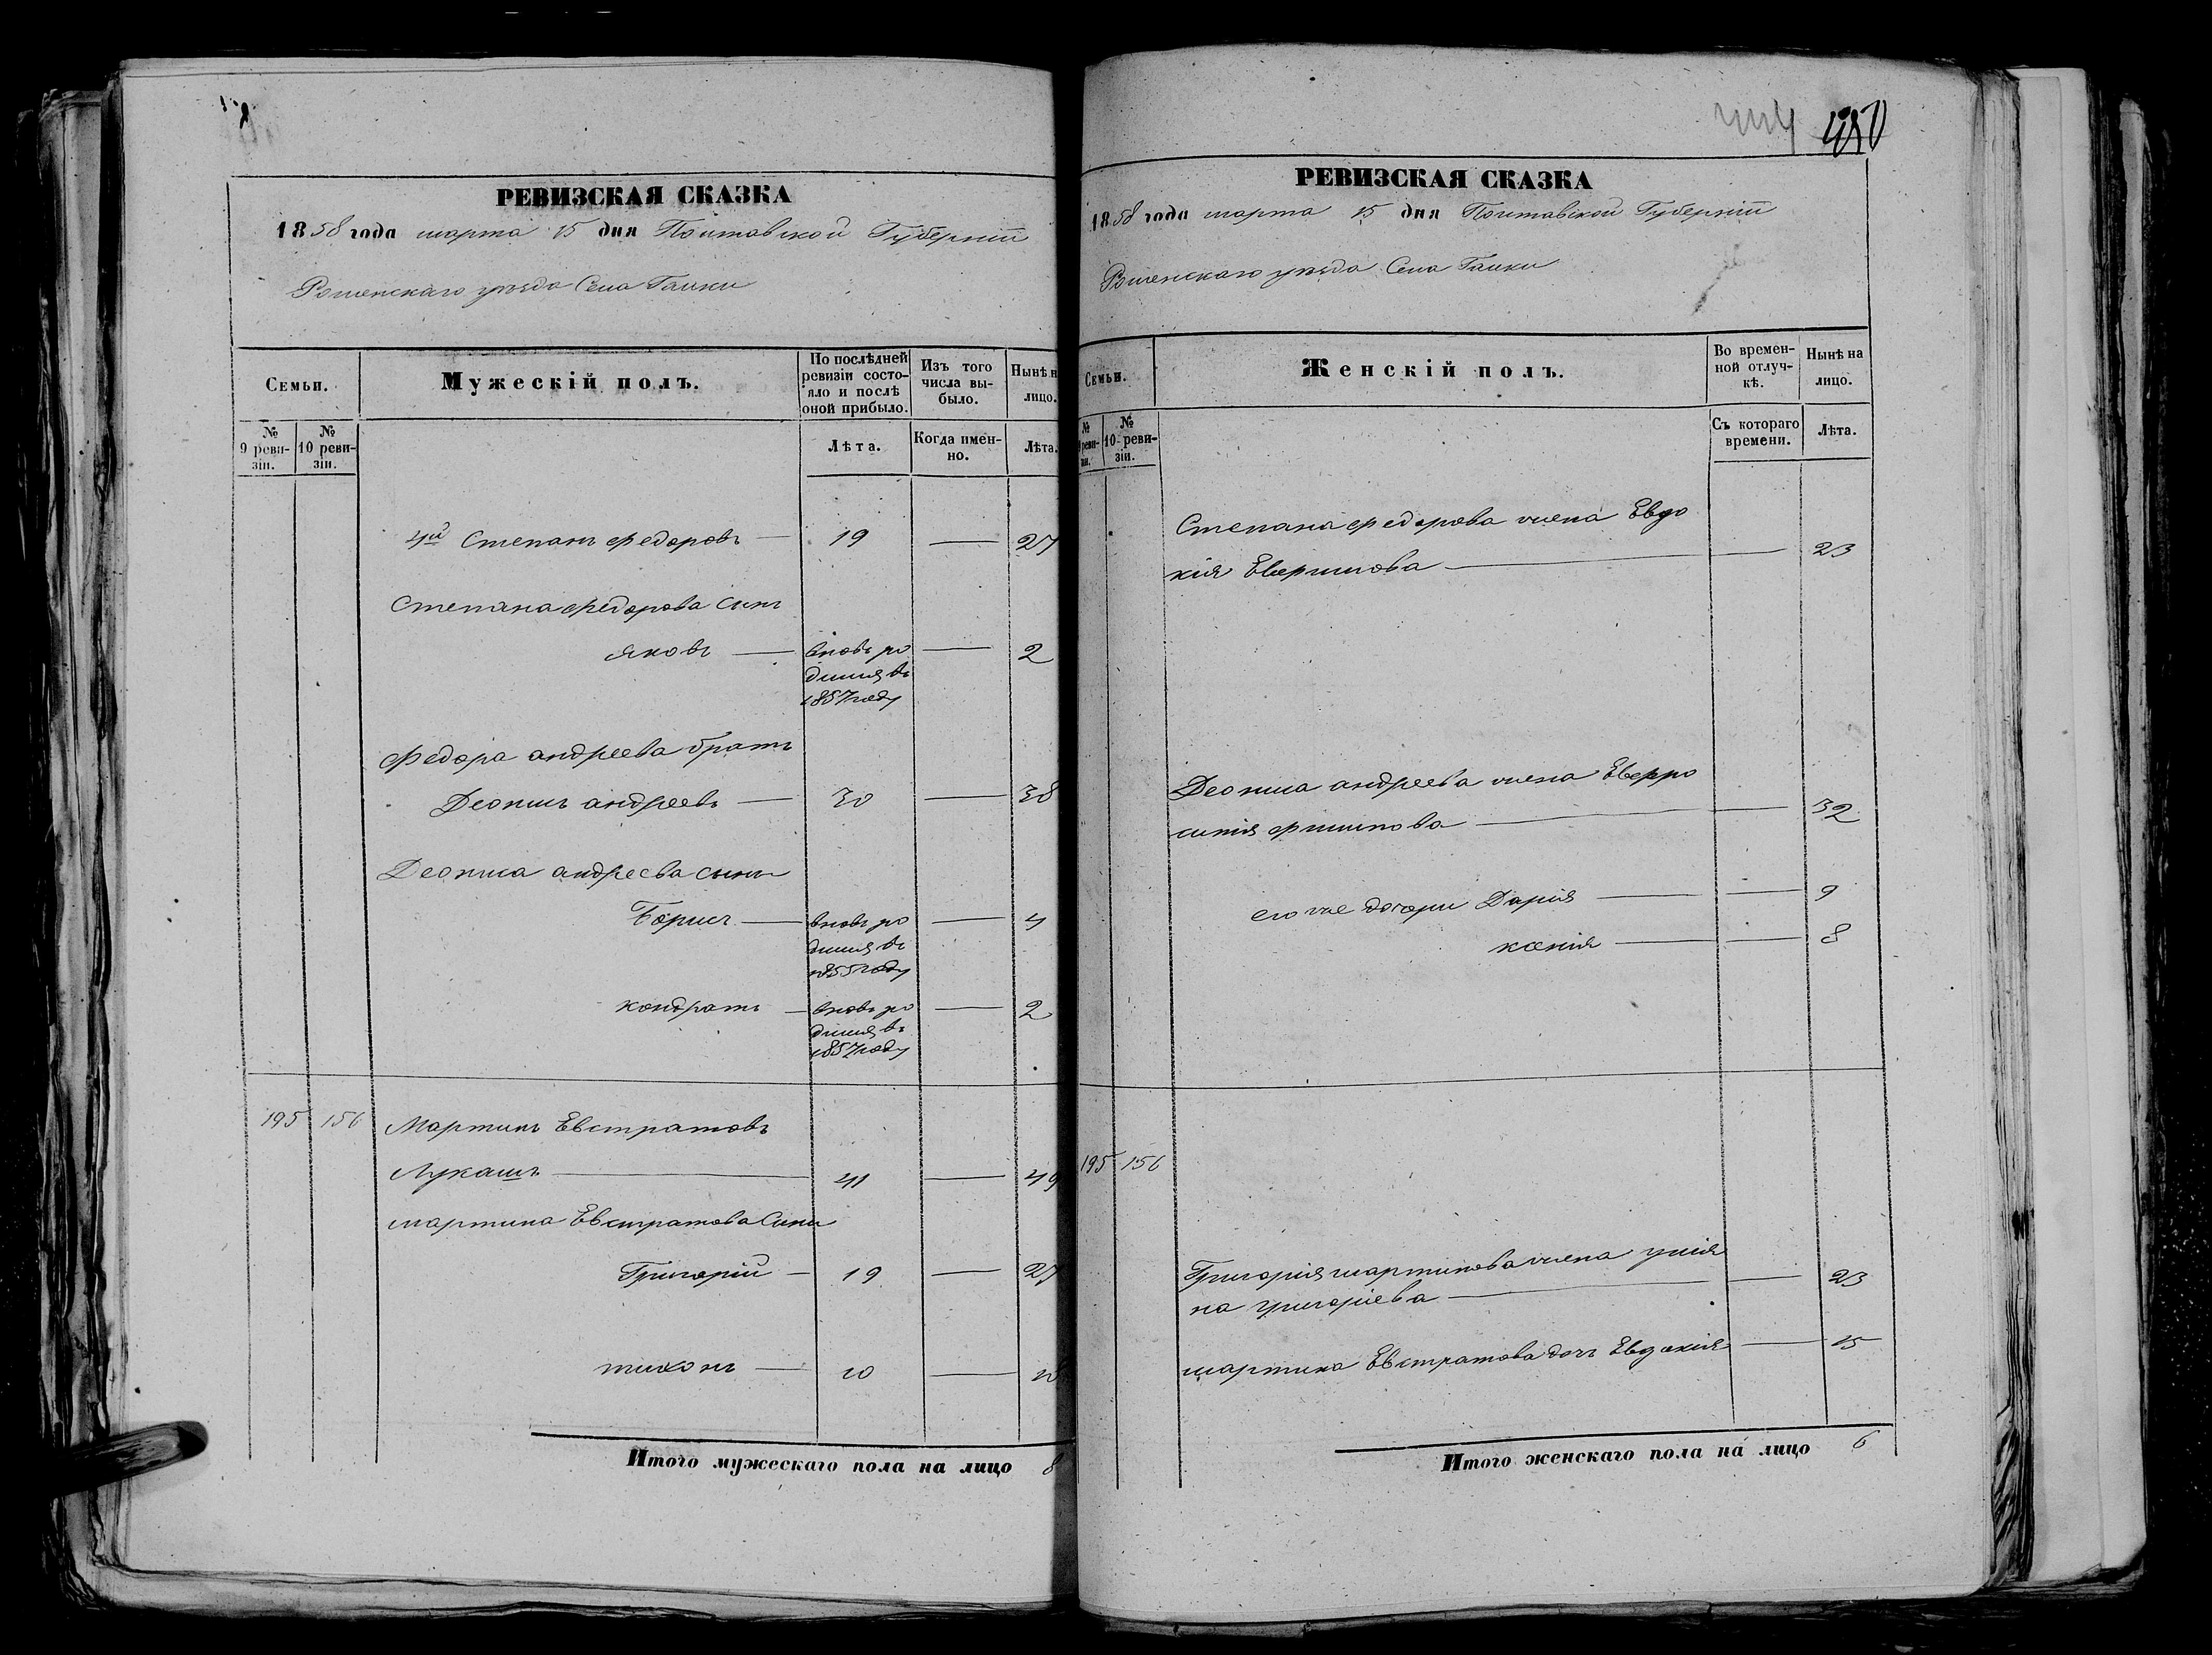 РЕВИЗСКАЯ СКАЗКА
1858 года марта 15 дня Полтавской Губерніи
Роменскаго уѣзда Села Галки
Семьи.
Мужескій полъ.
По послѣдней ревизіи состояло и послѣ оной прибыло.
Изъ того числа выбыло.
Нынѣ н
лицо.
№ 9 ревизіи.
№ 10 ревизіи.
Лѣта.
Когда именно.
Лѣта.
4й Степанъ Федоровъ — 19 — 27
Степана Федорова Сынъ
Яковъ — вновь ро — 2
дился въ
1857 году
Федора андреева братъ
Деонисъ андреевъ — 30 — 38
Деониса андреева сыны
Борисъ — вновь ро — 4
дился въ
1855 году
кондратъ — вновь ро — 2
дился въ
1857 году
195 156 Мартинъ Евстратовъ
Лукашъ — 41 — 49
мартина Евстратова Сыны
Григорій — 19 — 27
тихонъ — 10 —
Итого мужескаго пола на лицо 8
РЕВИЗСКАЯ СКАЗКА
1858 года марта 15 дня Полтавской Губерніи
Роменскаго уѣзда Села Галки
Семьи.
Женскій полъ.
Во временной отлучкѣ.
Нынѣ на лицо.
№ 10 ревизіи.
Съ котораго времени.
Лѣта.
Степана Федорова жена Евдо
кія — — 23
Деониса андреева жена Евфро
синія Филипова — — 32
его же дочери Дарія — — 9
ксенія — — 8
195 156
Григорія мартинова жена улія
на григоріева — — 23
мартина Евстратова дочь Евдокія — 15
Итого женскаго пола на лицо 6